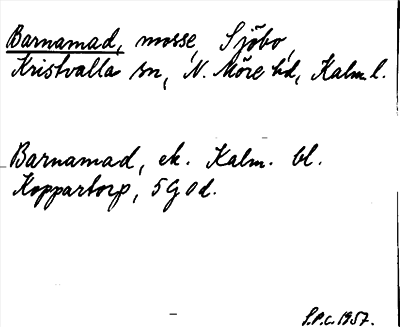 Barnamad, mosse, Sjöbo,
Kristvalla sn, N. Möre hd, Kalm. l.
Barnamad, ek. Kalm. bl.
Koppartorp, 5G0d.
S.P.C. 1957.